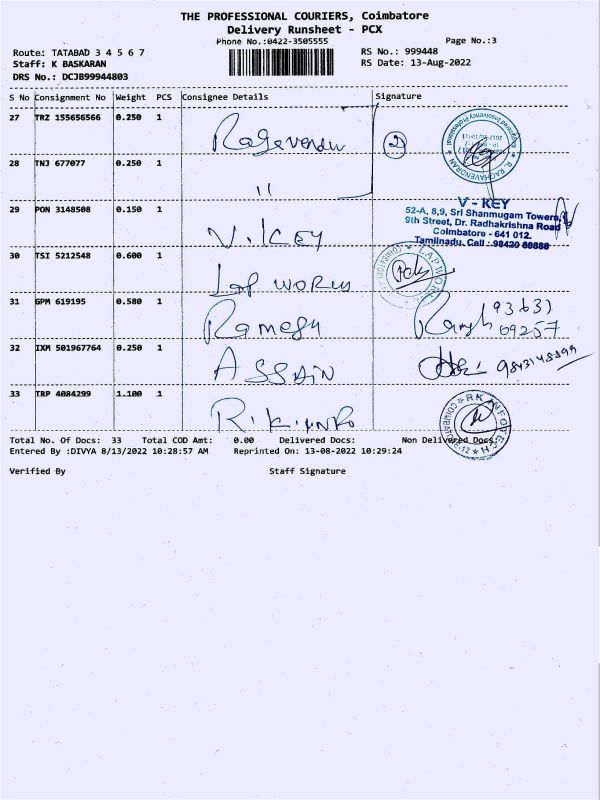 THE PROFESSIONAL COURIERS, Coimbatore
Delivery Runsheet - PCX
Phone No.:0422-3505555
Page No.:3
Route: TATABAD 3 4 5 6 7
RS No.: 999448
Staff: K BASKARAN
RS Date: 13-Aug-2022
DRS No.: DCJB99944803
S No Consignment No Weight PCS Consignee Details Signature
27 TRZ 155656566 0.250 1 Ragavendu 2
R. RAGHAVENDRAN
28 TNJ 677077 0.250 1 "
V - KEY
52-A, 8,9, Sri Shanmugam Towers,
9th Street, Dr. Radhakrishna Road
Coimbatore - 641 012.
Tamilnadu, Cell : 98420 88888
29 PON 3148508 0.150 1 V.KEY
30 TSI 5212548 0.600 1 Lap WORLD
LAPWORLD
31 GPM 619195 0.580 1 Ramesh 93631
69257
32 IXM 501967764 0.250 1 ASSAIN 9843148899
33 TRP 4084299 1.100 1 R.K.INFO
RK INFOTECH
COIMBATORE-12
Total No. Of Docs: 33 Total COD Amt: 0.00 Delivered Docs: Non Delivered Docs:
Entered By :DIVYA 8/13/2022 10:28:57 AM Reprinted On: 13-08-2022 10:29:24
Verified By Staff Signature